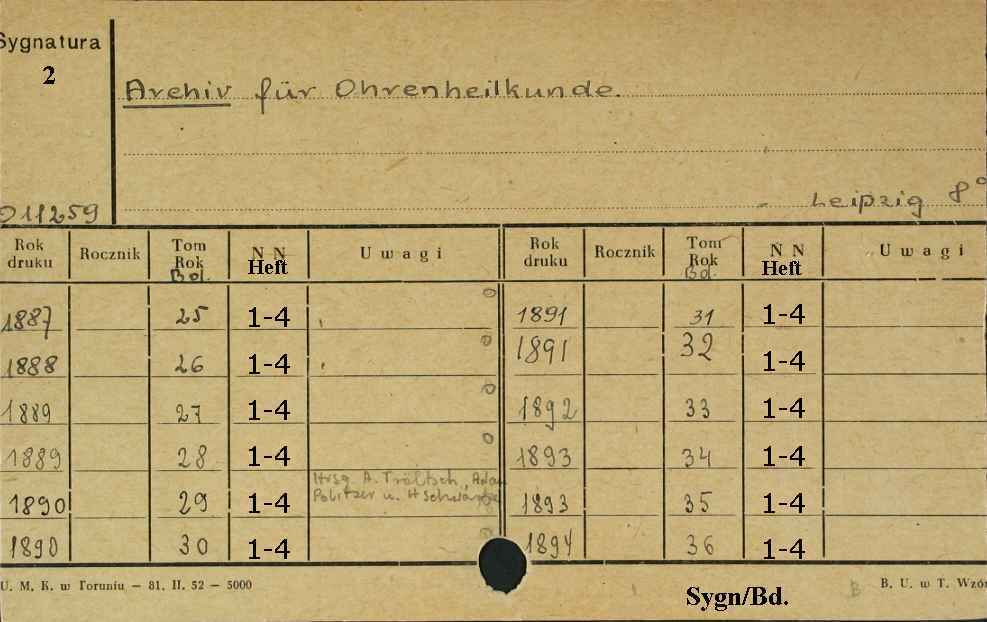 Sygnatura
2
Archiv für Ohrenheilkunde.
011259
Leipzig 8°
Rok druku Rocznik Tom Rok Bd. N N Heft Uwagi Rok druku Rocznik Tom Rok Bd. N N Heft Uwagi
1887 25 1-4 1891 31 1-4
1888 26 1-4 1891 32 1-4
1889 27 1-4 1892 33 1-4
1889 28 1-4 1893 34 1-4
Hrsg. A. Tröltsch, Adam
1890 29 1-4 Politzer u. H Schwartze 1893 35 1-4
1890 30 1-4 1894 36 1-4
U. M. K. w Toruniu — 81. II. 52 — 5000
Sygn/Bd.
B
B. U. w T. Wzór